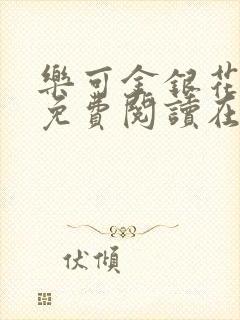 樂可金銀花
免費閱讀在
伏傾